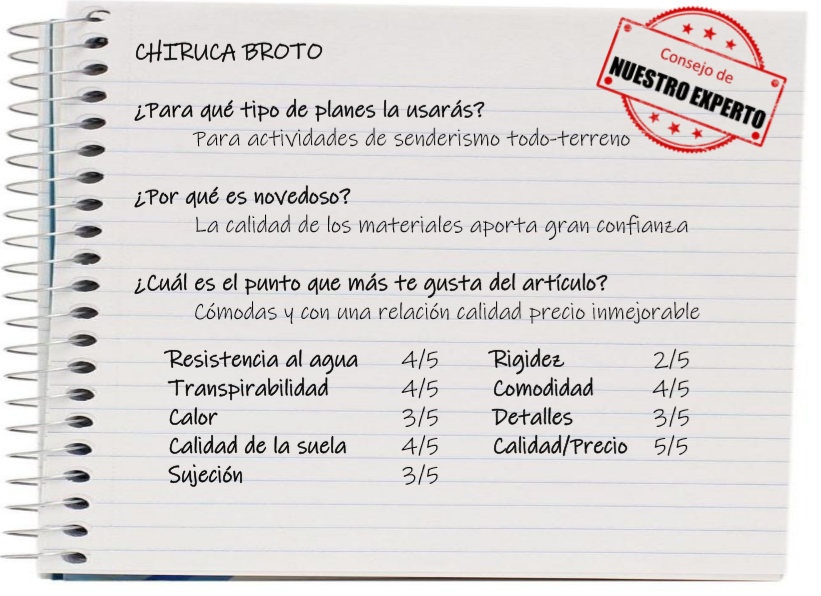 CHIRUCA BROTO
Consejo de
NUESTRO EXPERTO
¿Para qué tipo de planes la usarás?
Para actividades de senderismo todo-terreno
¿Por qué es novedoso?
La calidad de los materiales aporta gran confianza
¿Cuál es el punto que más te gusta del artículo?
Cómodas y con una relación calidad precio inmejorable
Resistencia al agua 4/5 Rigidez 2/5
Transpirabilidad 4/5 Comodidad 4/5
Calor 3/5 Detalles 3/5
Calidad de la suela 4/5 Calidad/Precio 5/5
Sujeción 3/5